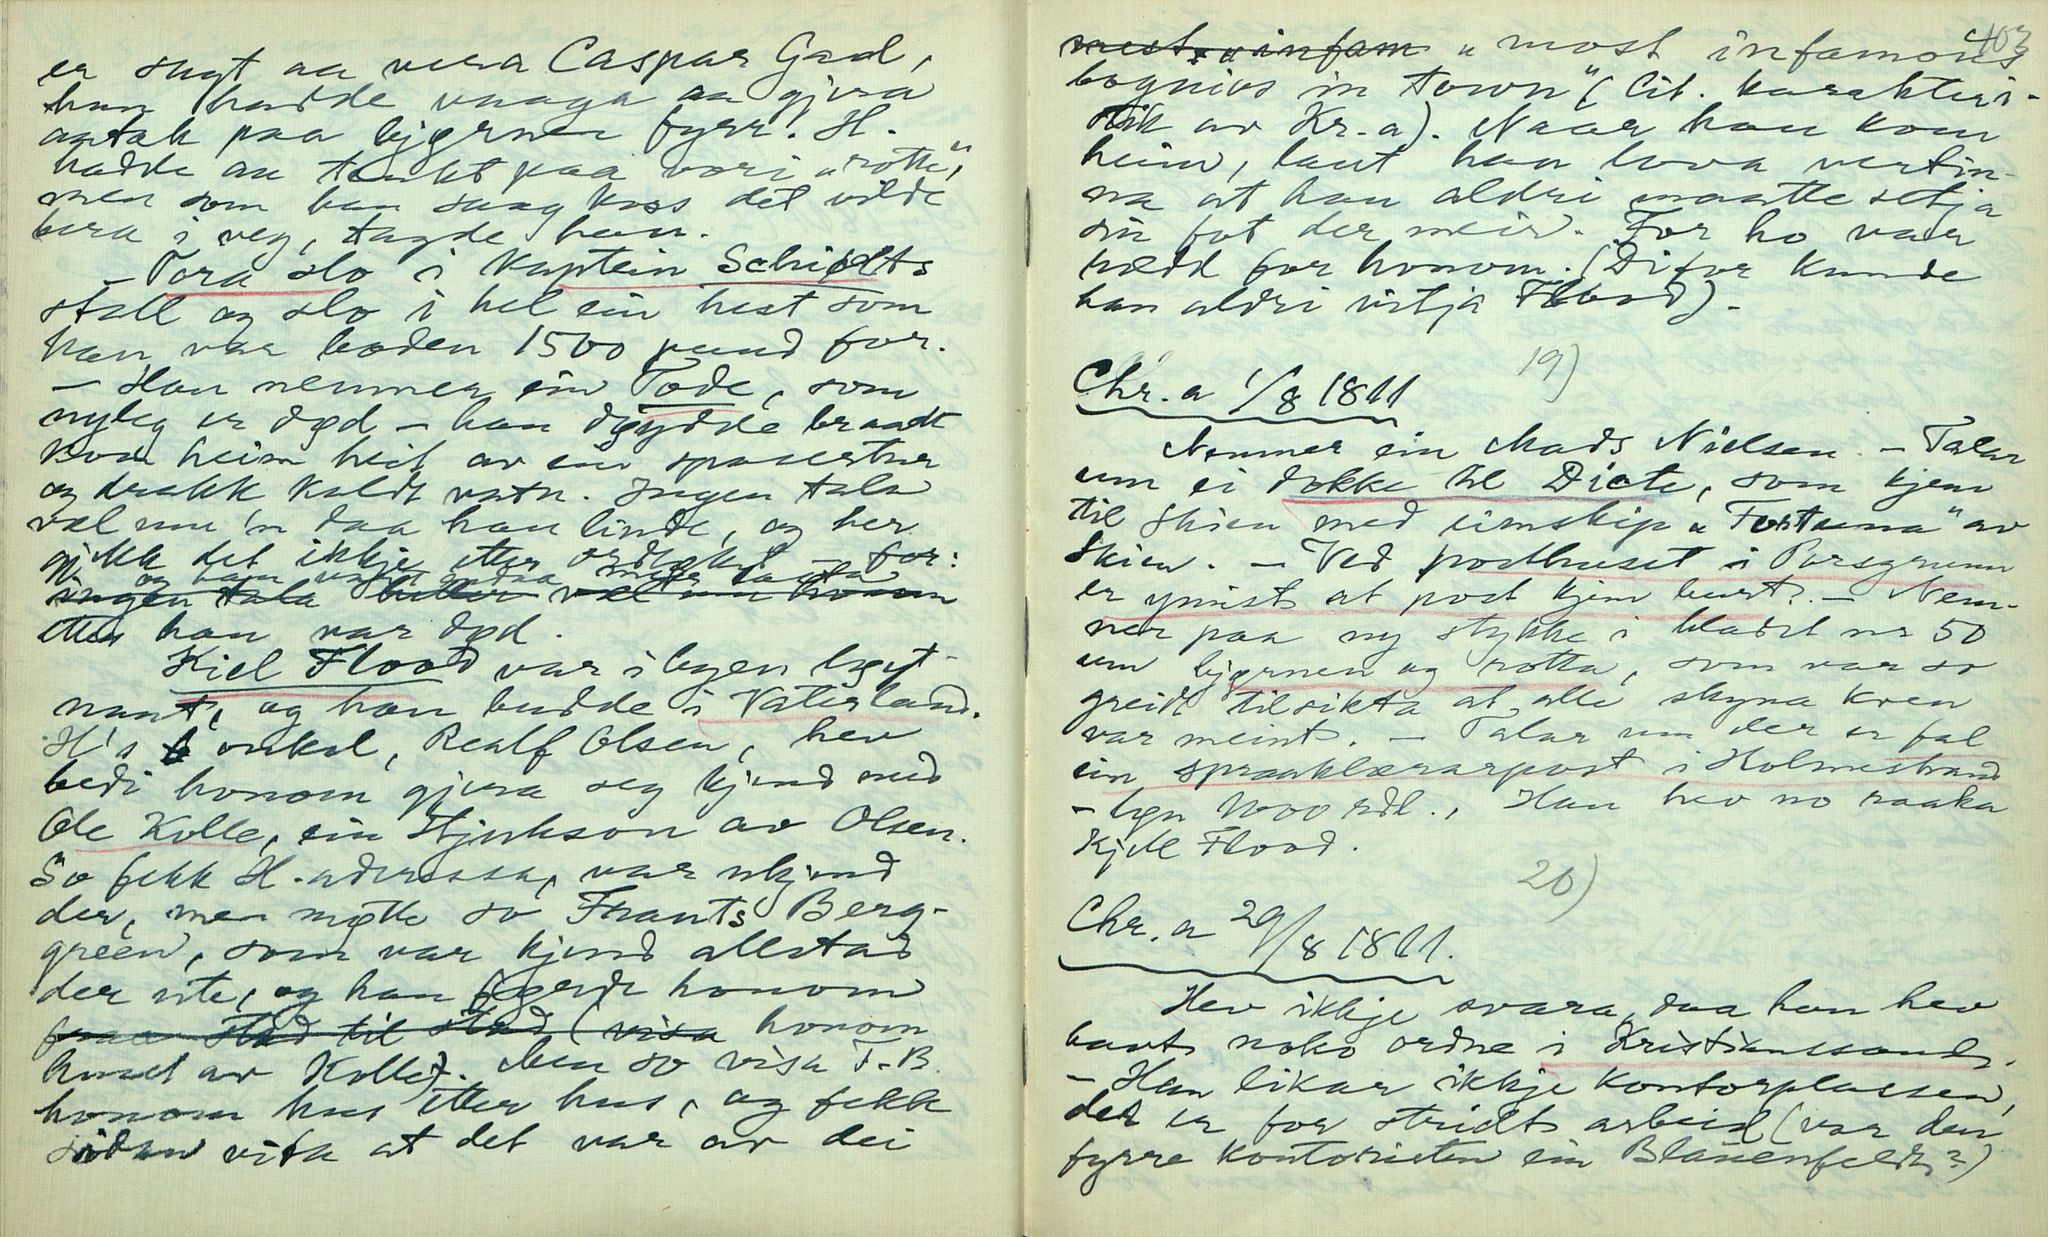 er sagt aa vera Caspar Gad,
han hadde vaaga aa gjera
aatak paa bjørnen fyrr. H.
hadde aa tenkt paa vori "rotte",
men som han saag koss det vilde
bera i veg, tagde han.
- Tora slo i kaptein Schiødts
stall og slo i hel ein hest som
han var boden 1500 pund for.
- Han nemner ein Tode, som
nyleg er død - han døydde braadt
kom heim heit av ein spasertur
og drakk kaldt vatn. Ingen tala
væl um'n daa han livde, og her
gjekk det ikkje etter ordtøket - for:
ingen tala heller væl um honom
etter han var død.
Kiel Flood var i byen løyt-
nant, og han budde i Vaterland.
H's onkel, Realf Olsen, hev
bedi honom gjera seg kjend med
Ole Kolle, ein stjukson av Olsen.
So fekk H. adressa, var ukjend
der, men møtte so Frants Berg-
green, som var kjend allstad
der ute, og han honom
fraa stad til stad (visa honom
huset av Kolle). Men so visa F.B.
honom hus etter hus, og fekk
sidan vita at det var av dei
403
mest "infam "most infamous
bognios in town" (cit. karakteri-
stik av Kr.a). Naar han kom
heim, laut han lova vertin-
na at han aldri maatte setja
sin fot der meir. For ho var
rædd for honom. (Difor kunde
han aldri vitja Flood). -
19)
Chr.a 1/8 1811
Nemner ein Mads Nielsen. - Talar
um ei dokke til Dicte, som kjem
til Skien med eimskip "Fortuna" av
Skien. - Ved posthuset i Porsgrunn
er ymist at post kjem burt. - Nem-
ner paa ny stykke i bladet nr 50
um bjørnen og rotta, som var so
greidt tilsikta at alle skyna kven
var meint. - Talar um der er fal
ein spraaklærarpost i Holmestrand
- løn 1000 rdl., Han hev no raaka
Kjell Flood.
20)
Chr.a 29/8 1811.
Hev ikkje svara, daa han hev
havt noko ordne i Kristianssand.
- Han likar ikkje kontorplassen,
det er for stridt arbeid (var den
fyrre kontoristen ein Blauenfeldt?)